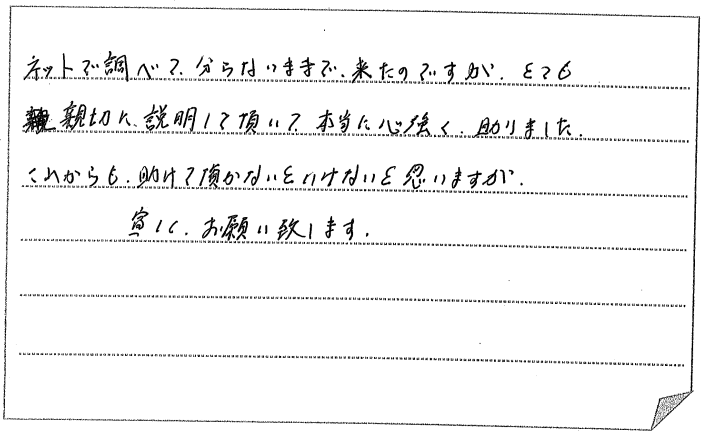 ネットで調べて、分らないままで、来たのですが、とても
親切に、説明して頂いて、本当に心強く、助りました。
これからも、助けて頂かないといけないと思いますが、
宜しく、お願い致します。